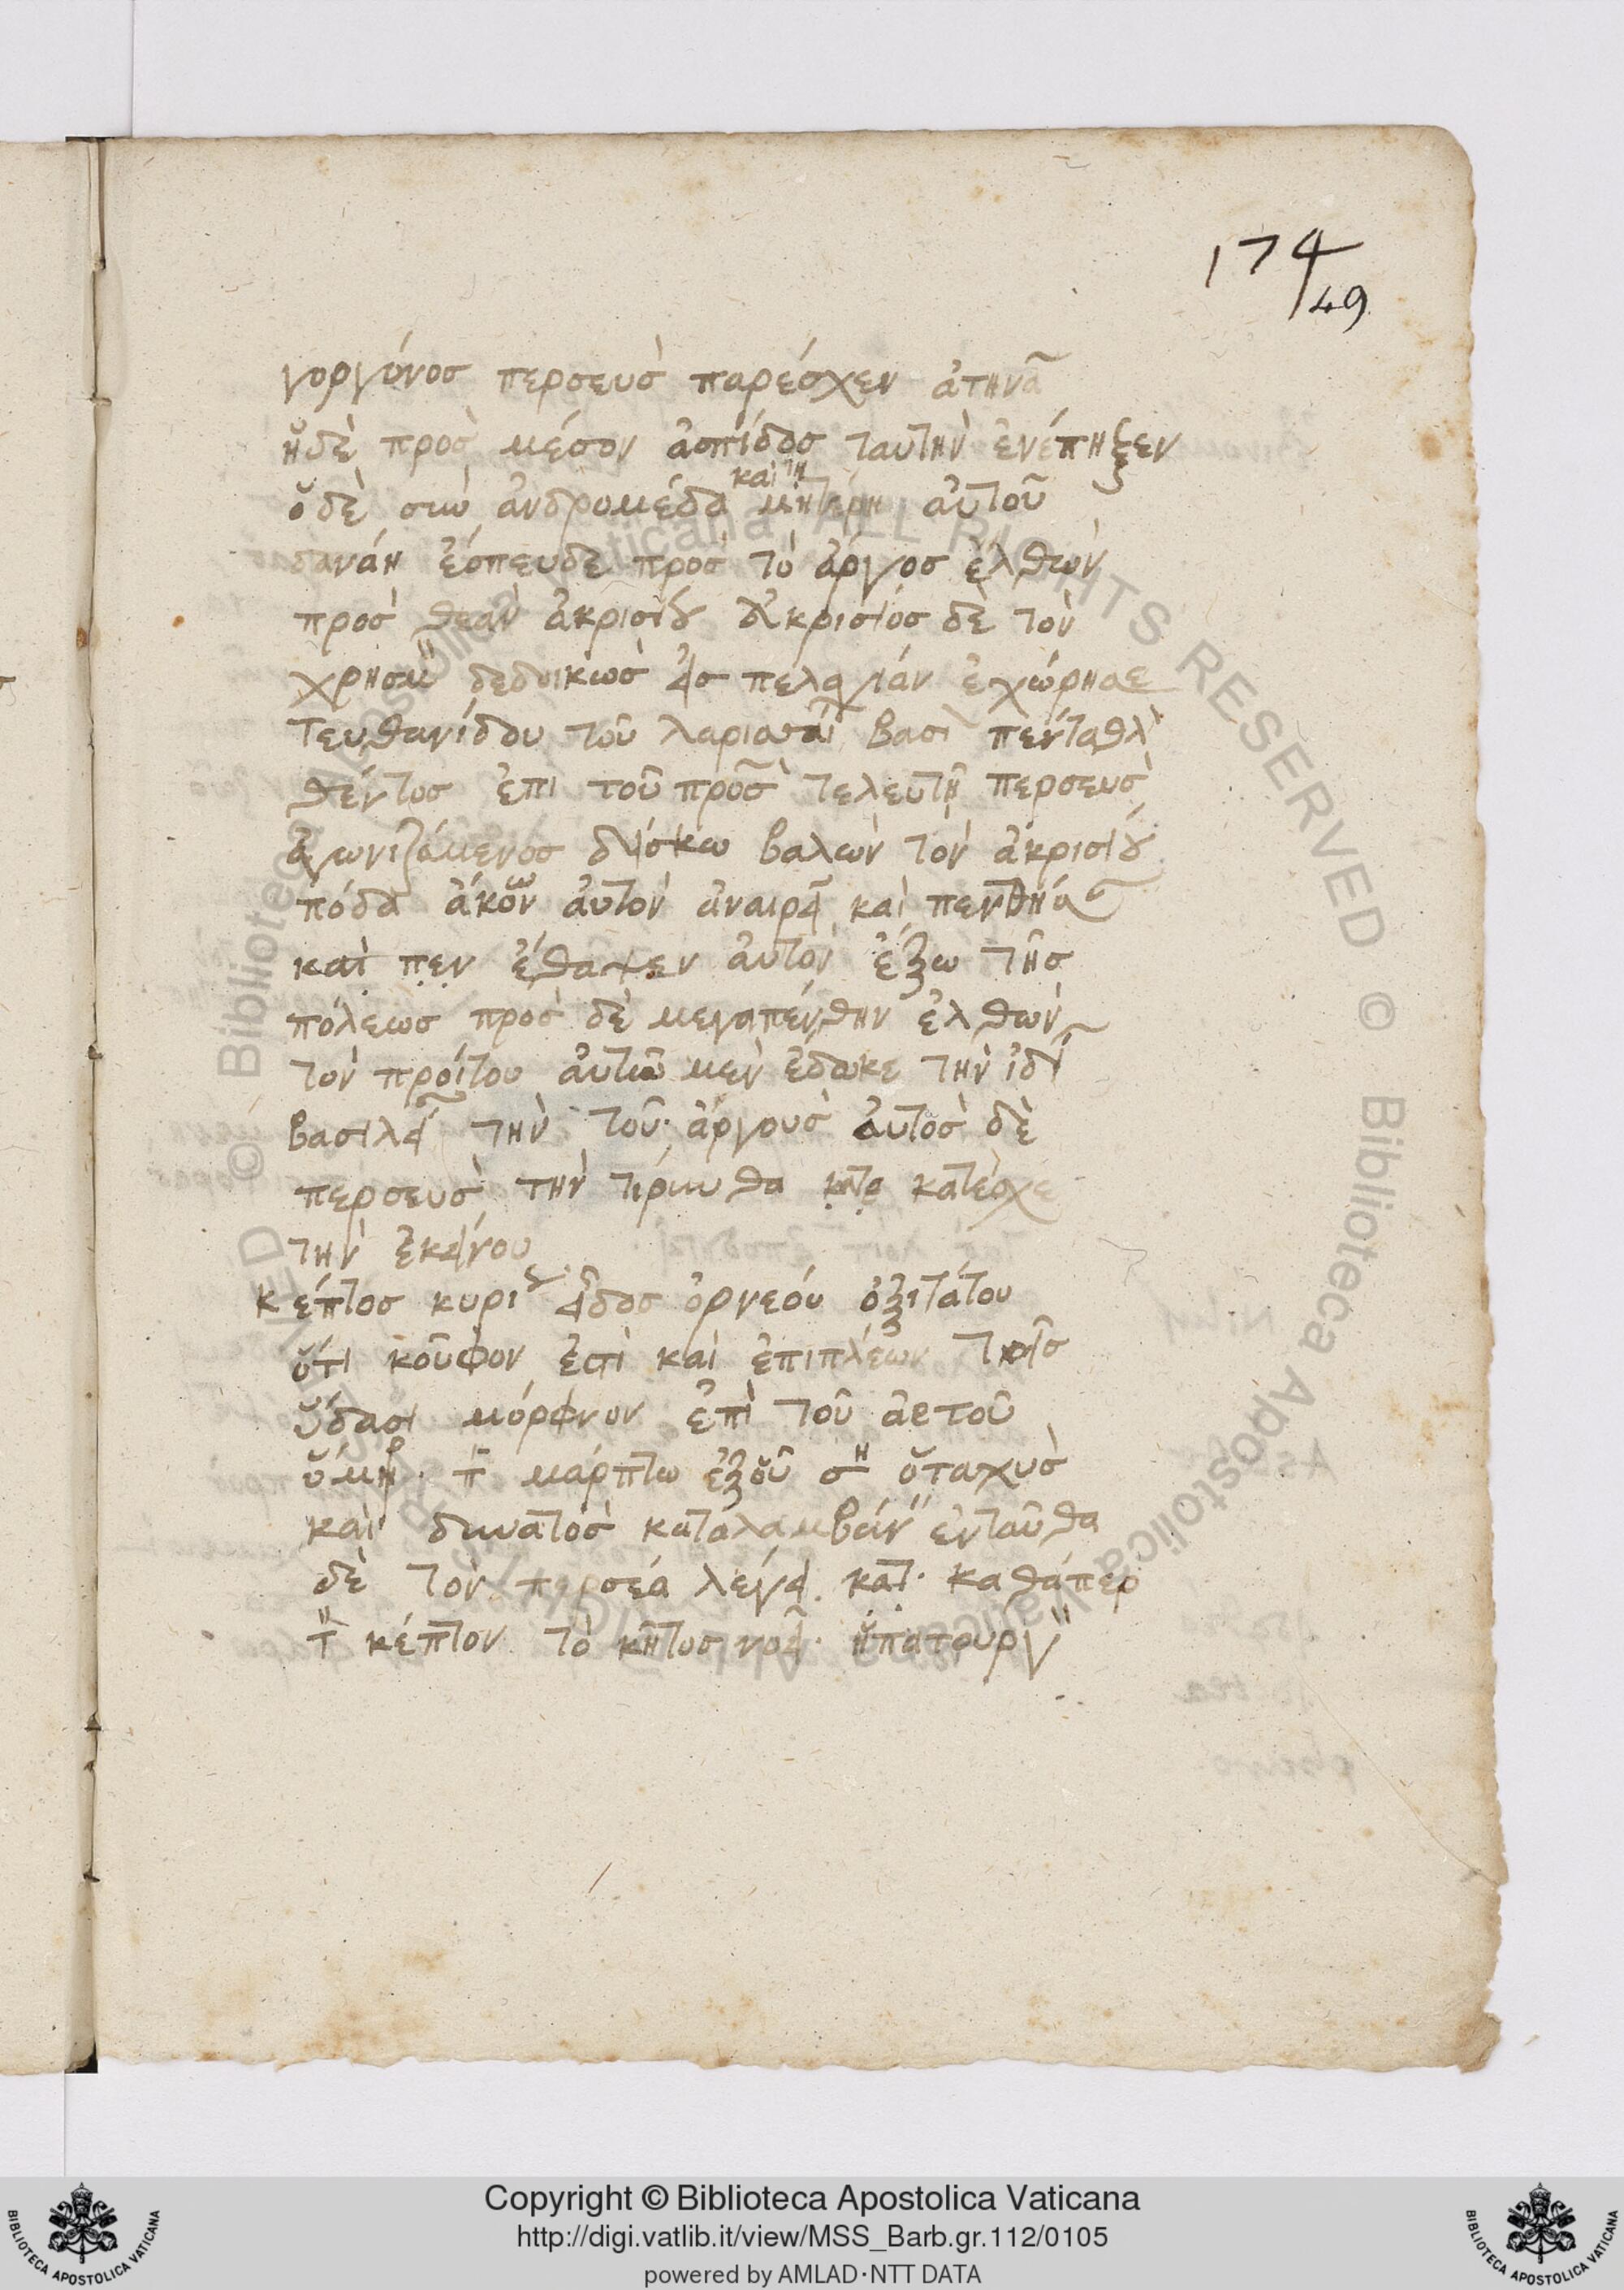 174
49
γοργόνοσ περσευσ̀ παρέσχεν ἀτηνᾶ
ἥδὲ προσ̀ μέσον ἀσπίδοσ ταυτην̀ ἐνέπηξεν
ὅδὲ σιὼ ἀνδρομέδα καὶ τῆ μητέρη αὐτοῦ
δανάη ἔσπευδε προσ̀ τὸ ἄργοσ ἐλθὼν
προσ̀ θεαν̀ ἀκρισίου ἀκρισιόσ δὲ τὸν
χρησμ̀ δεδοικωσ̀ εἰσ πελαγίαν ἐχώρησε
τευθανίδου τοῦ λαρισσαί βασιλ πενταθλ̀
θέντοσ ἐπι τοῦ πρõσ̀ τελευτῆ περσευσ̀
ἀγωνιζόμενοσ δίσκω βαλὼν τὸν ἀκρισίου
πόδα ἄκων αὐτὸν ἀναιρεῖ καὶ πενθήσ
καὶ πεν ἔθαψεν αὐτὸν ἔξω τῆσ
πόλεωσ προσ̀ δὲ μεγαπένθην ἐλθὼν
τὸν προίτου αὐτῶ μεν̀ ἔδωκε τὴν ἰδί
βασιλεί τὴν τοῦ ἄργουσ̀ αὐτοσ̀ δὲ
περσευσ̀ τὴν τίρυνθα κατε κατέσχε
τὴν ἐκείνου
κέπτοσ κυρι εἶδοσ ὀρνεόυ ὀξιτάτου
ὅτι κοῦφον ἐστὶ καὶ ἐπιπλέων τοῖσ
ὕδασι μόρφνον ἐπὶ τοῦ ἀετοῦ
ὅμηρ. π̈ μάρπτω ἐξοῦ ση ὅταχυσ̀
καὶ δυνατὸσ̀ καταλαμβάν̈ ἐνταῦθα
δὲ τὸν περσέα λέγει. κατ. καθάπερ
τ̈ κέπτον τὸ κῆτοσ νοεῖ. ἥπατουργ̈
Copyright © Biblioteca Apostolica Vaticana
http://digi.vatlib.it/view/MSS_Barb.gr.112/0105
powered by AMLAD·NTT DATA